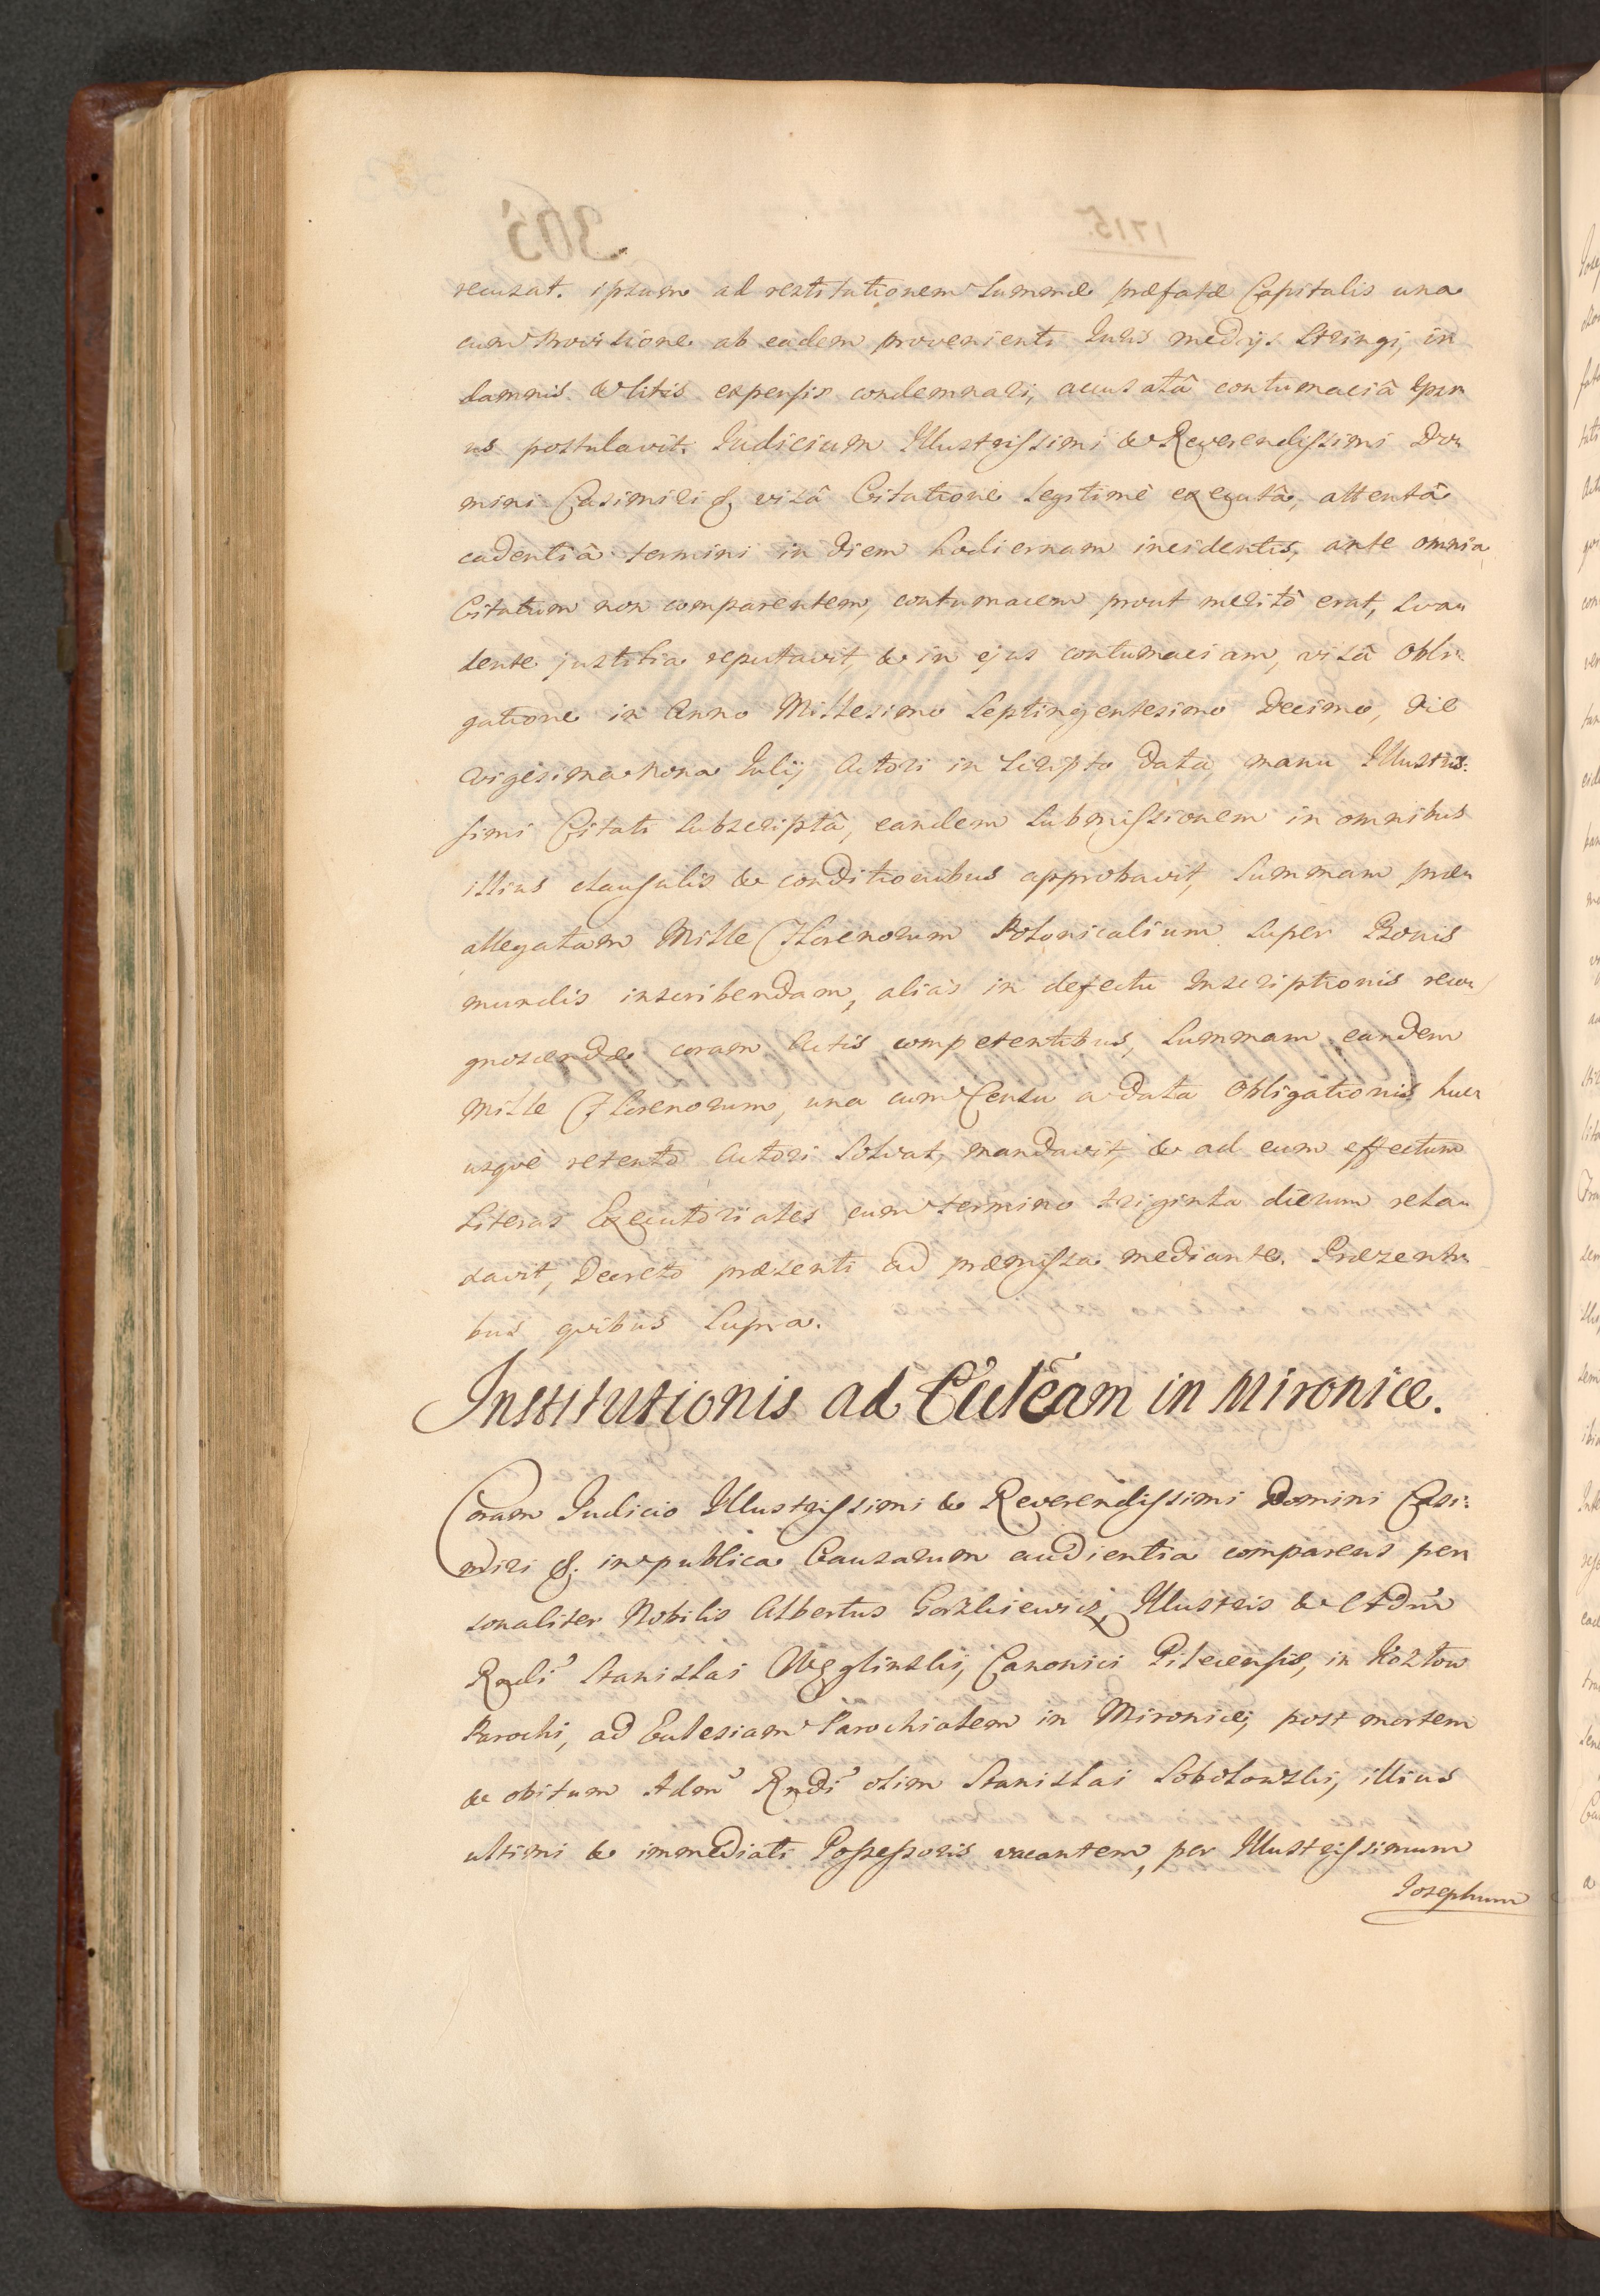 recusat. ipsum ad restitutionem Summæ præfatæ Capitalis una
cum Provisione ab eadem provenienti Juris medijs stringi, in
damnis & litis expensis condemnari, accusatâ contumaciâ ipsi
us postulavit. Judicium Illustrissimi & Reverendissimi Do
mini Casimiri &. visâ Citatione legitimè executâ, attentâ
cadentiâ termini in diem hodiernam incidentis, ante omnia
Citatum non comparentem, contumacem prout meritò erat, sva
dente justitia reputavit, & in ejus contumaciam, visâ Obli
gatione in Anno Millesimo Septingentesimo Decimo, die
vigesima nona Julij Actori in Scripto data, manu Illustris:
simi Citati subscriptâ, eandem submissionem in omnibus
illius clausulis & conditionibus approbavit, Summam præ
allegatam Mille Florenorum Polonicalium super Bonis
mundis inscribendam, alias in defectu Inscriptionis reco
gnoscendæ coram Actis competentibus, Summam eandem
Mille Florenorum, una cum Censu a data Obligationis huc
usquè retento Actori solvat, mandavit, & ad eum effectum
Literas Executoriales cum termino triginta dierum rela
xavit, Decreto præsenti ad præmissa mediante. Præsenti
bus quibus supra.
Institutionis ad Ecclēam in Mironice.
Coram Judicio Illustrissimi & Reverendissimi Domini Casi:
miri &. in publica Causarum audientia comparens per
sonaliter Nobilis Albertus Gorzkiewicz, Illustris & Adm̄
Rndi Stanislai Węglinski, Canonici Pilecensis, in Kozłow
Parochi, ad Ecclesiam Parochialem in Mironice, post mortem
& obitum Adm Rndi olim Stanislai Sobolowski, illius
ultimi & immediati Possessoris vacantem, per Illustrissimum
Josephum